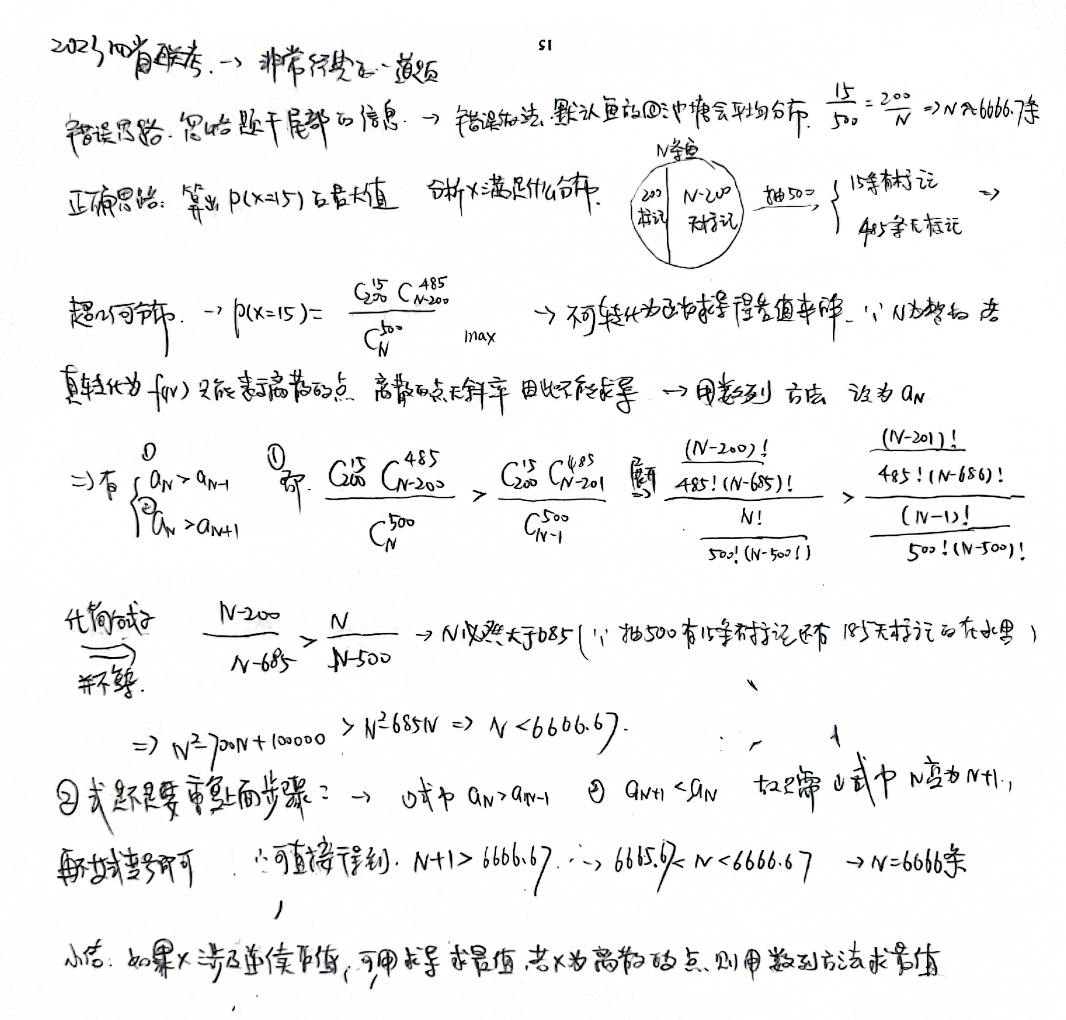 2023四省联考. → 非常经典的一道题
15
错误思路. 忽略题干尾部的信息. → 错误做法. 默认鱼放回池塘会平均分布. 15/500 = 200/N ⇒ N≈6666.7条
N条鱼
正确思路: 算出 P(X=15) 的最大值 分析X满足什么分布. 200标记 N-200无标记 抽500→ { 15条有标记 485条无标记 ⇒
超几何分布. → P(X=15) = C₂₀₀¹⁵ C_{N-200}^{485} / C_N^{500} max → 不可转化为函数求导得最值来解. ∵ N为整的 若
真转化为 f(N) 只能表示离散的点 离散的点无斜率 因此不能求导 → 用数列方法 设为 a_N
⇒有 { ① a_N > a_{N-1} ② a_N > a_{N+1} ① 即. C₂₀₀¹⁵ C_{N-200}^{485} / C_N^{500} > C₂₀₀¹⁵ C_{N-201}^{485} / C_{N-1}^{500} (N-200)! / 485!(N-685)! / N! / 500!(N-500!) > (N-201)! / 485!(N-686)! / (N-1)! / 500!(N-500)!
化简式子 并不难. ⇒ N-200 / N-685 > N / N-500 → N必然大于685(∵ 抽500有15条有标记还有185无标记的在水里)
⇒ N²-700N+100000 > N²-685N ⇒ N<6666.67.
②式是不是要重复上面步骤? → ①式中 a_N>a_{N-1} ② a_{N+1}<a_N 故只需①式中N变为N+1,
再不等式变号即可 ∴可直接得到. N+1>6666.67. ∴ 6665.67<N<6666.67 → N=6666条
小结. 如果X涉及连续取值, 可用求导求最值, 若X为离散的点, 则用数列方法求最值